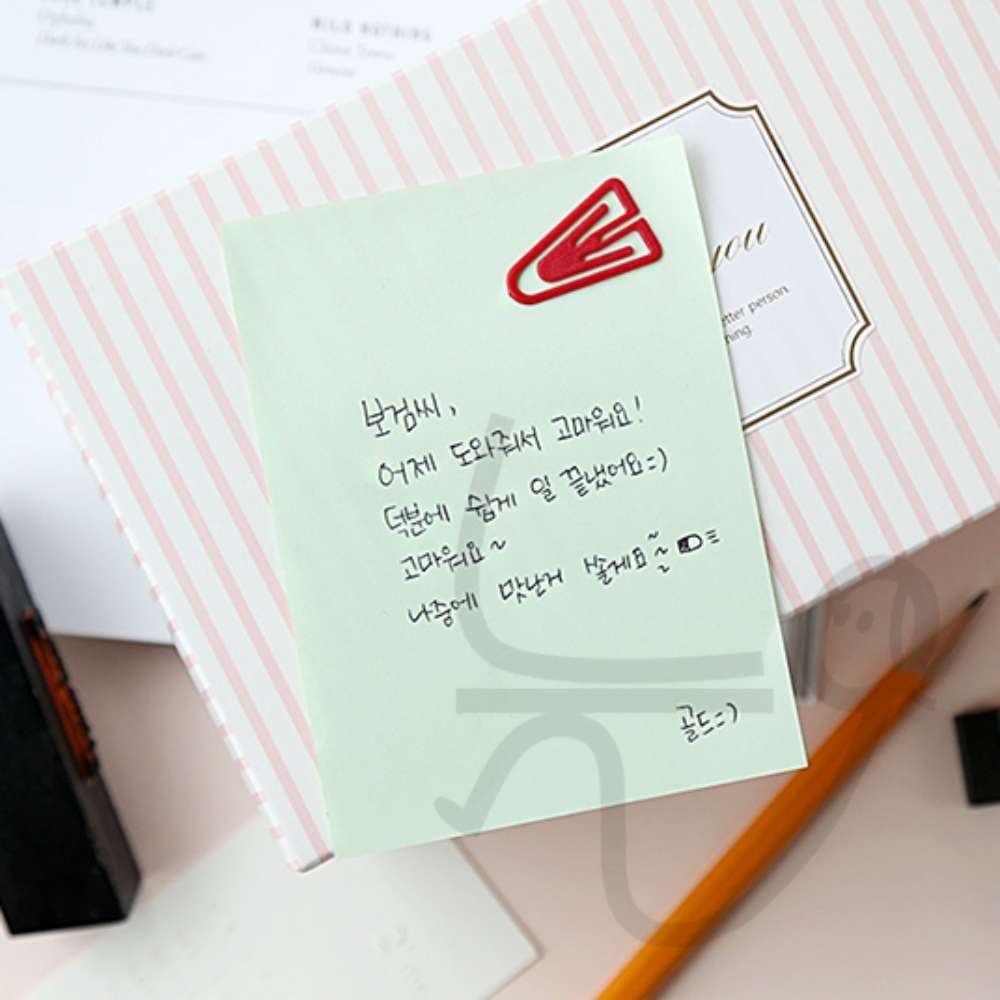 MILD NOTHING
you
tter person.
ning.
보검씨,
어제 도와줘서 고마워요!
덕분에 쉽게 일 끝냈어요=)
고마워요~
나중에 맛난거 쏠게요~
골드=)